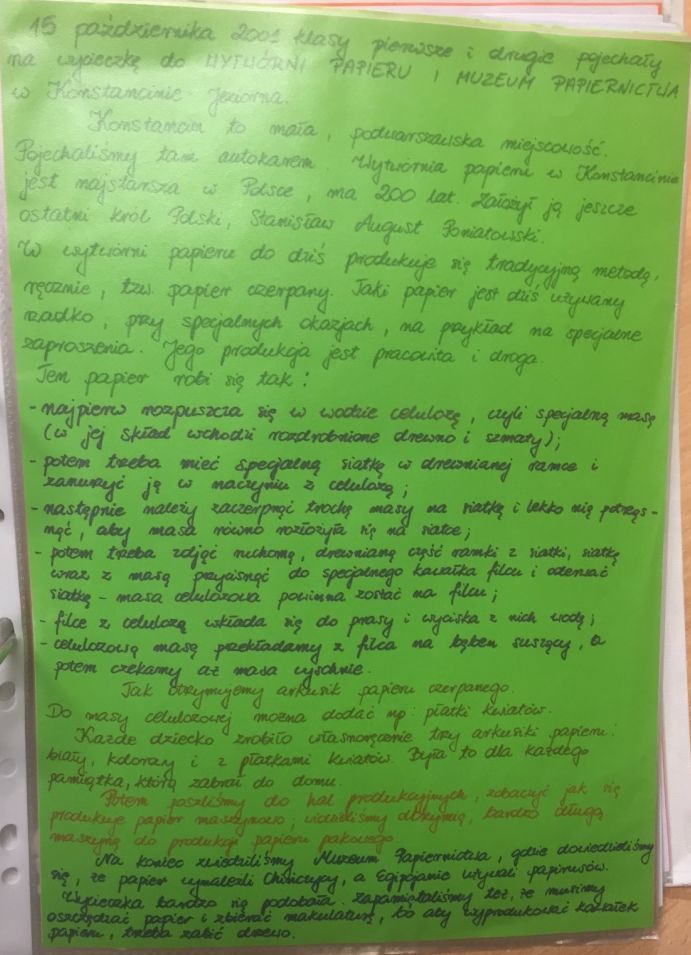 15 października 2001 klasy pierwsze i drugie pojechały
na wycieczkę do WYTWÓRNI PAPIERU i MUZEUM PAPIERNICTWA
w Konstancinie - Jeziorna.
Konstancin to mała, podwarszawska miejscowość.
Pojechaliśmy tam autokarem. Wytwórnia papieru w Konstancinie
jest najstarsza w Polsce, ma 200 lat. Założył ją jeszcze
ostatni król Polski, Stanisław August Poniatowski.
W wytwórni papieru do dziś produkuje się tradycyjną metodą,
ręcznie, tzw. papier czerpany. Taki papier jest dziś używany
rzadko, przy specjalnych okazjach, na przykład na specjalne
zaproszenia. Jego produkcja jest pracowita i droga.
Ten papier robi się tak:
- najpierw rozpuszcza się w wodzie celulozę, czyli specjalną masę
(w jej skład wchodzi rozdrobnione drewno i szmaty);
- potem trzeba mieć specjalną siatkę w drewnianej ramce i
zanurzyć ją w naczyniu z celulozą;
- następnie należy zaczerpnąć trochę masy na siatkę i lekko nią potrząs-
nąć, aby masa równo rozłożyła się na siatce;
- potem trzeba zdjąć ruchomą, drewnianą część ramki z siatki, siatkę
wraz z masą przycisnąć do specjalnego kawałka filcu i oderwać
siatkę - masa celulozowa powinna zostać na filcu;
- filce z celulozą wkłada się do prasy i wyciska z nich wodę;
- celulozową masę przekładamy z filca na bęben suszący, a
potem czekamy aż masa wyschnie.
Tak otrzymujemy arkusik papieru czerpanego.
Do masy celulozowej można dodać np: płatki kwiatów.
Każde dziecko zrobiło własnoręcznie trzy arkusiki papieru:
biały, kolorowy i z płatkami kwiatów. Była to dla każdego
pamiątka, którą zabrał do domu.
Potem poszliśmy do hal produkcyjnych, zobaczyć jak się
produkuje papier maszynowo; widzieliśmy olbrzymią, bardzo długą
maszynę do produkcji papieru pakowego.
Na koniec zwiedziliśmy Muzeum Papiernictwa, gdzie dowiedzieliśmy
się, że papier wynaleźli Chińczycy, a Egipcjanie używali papirusów.
Wycieczka bardzo się podobała. Zapamiętaliśmy też, że musimy
oszczędzać papier i zbierać makulaturę, bo aby wyprodukować kawałek
papieru, trzeba zabić drzewo.